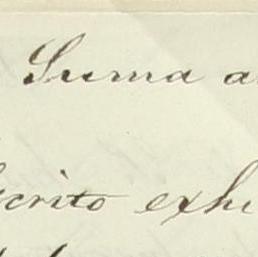 Suma a
crito exhi